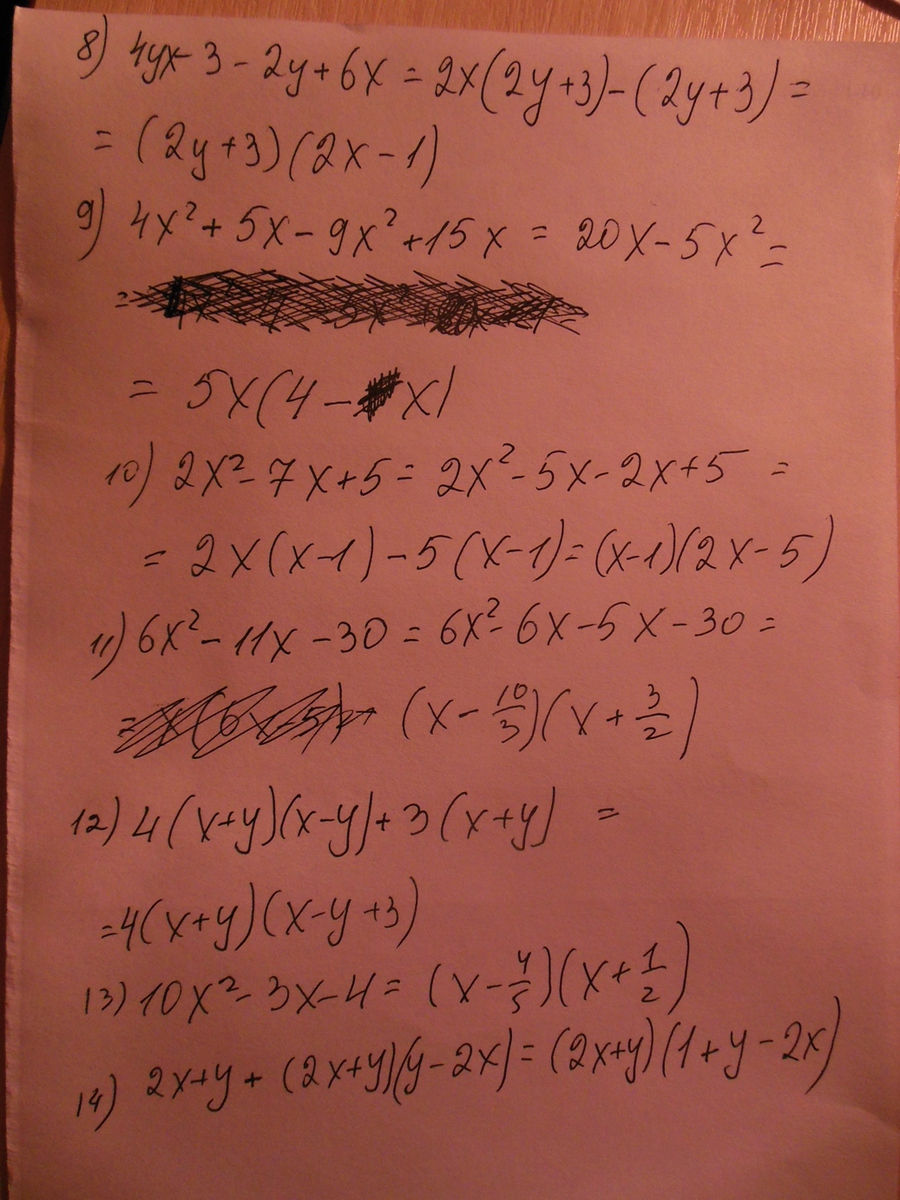 8) 4yx - 3 - 2y + 6x = 2x(2y+3) - (2y+3) =
= (2y+3)(2x-1)
9) 4x² + 5x - 9x² + 15x = 20x - 5x² =
= 5x(4 - x)
10) 2x² - 7x + 5 = 2x² - 5x - 2x + 5 =
= 2x(x-1) - 5(x-1) = (x-1)(2x-5)
11) 6x² - 11x - 30 = 6x² - 6x - 5x - 30 =
(x - 10/3)(x + 3/2)
12) 4(x+y)(x-y) + 3(x+y) =
= 4(x+y)(x-y+3)
13) 10x² - 3x - 4 = (x - 4/5)(x + 1/2)
14) 2x+y + (2x+y)(y-2x) = (2x+y)(1+y-2x)